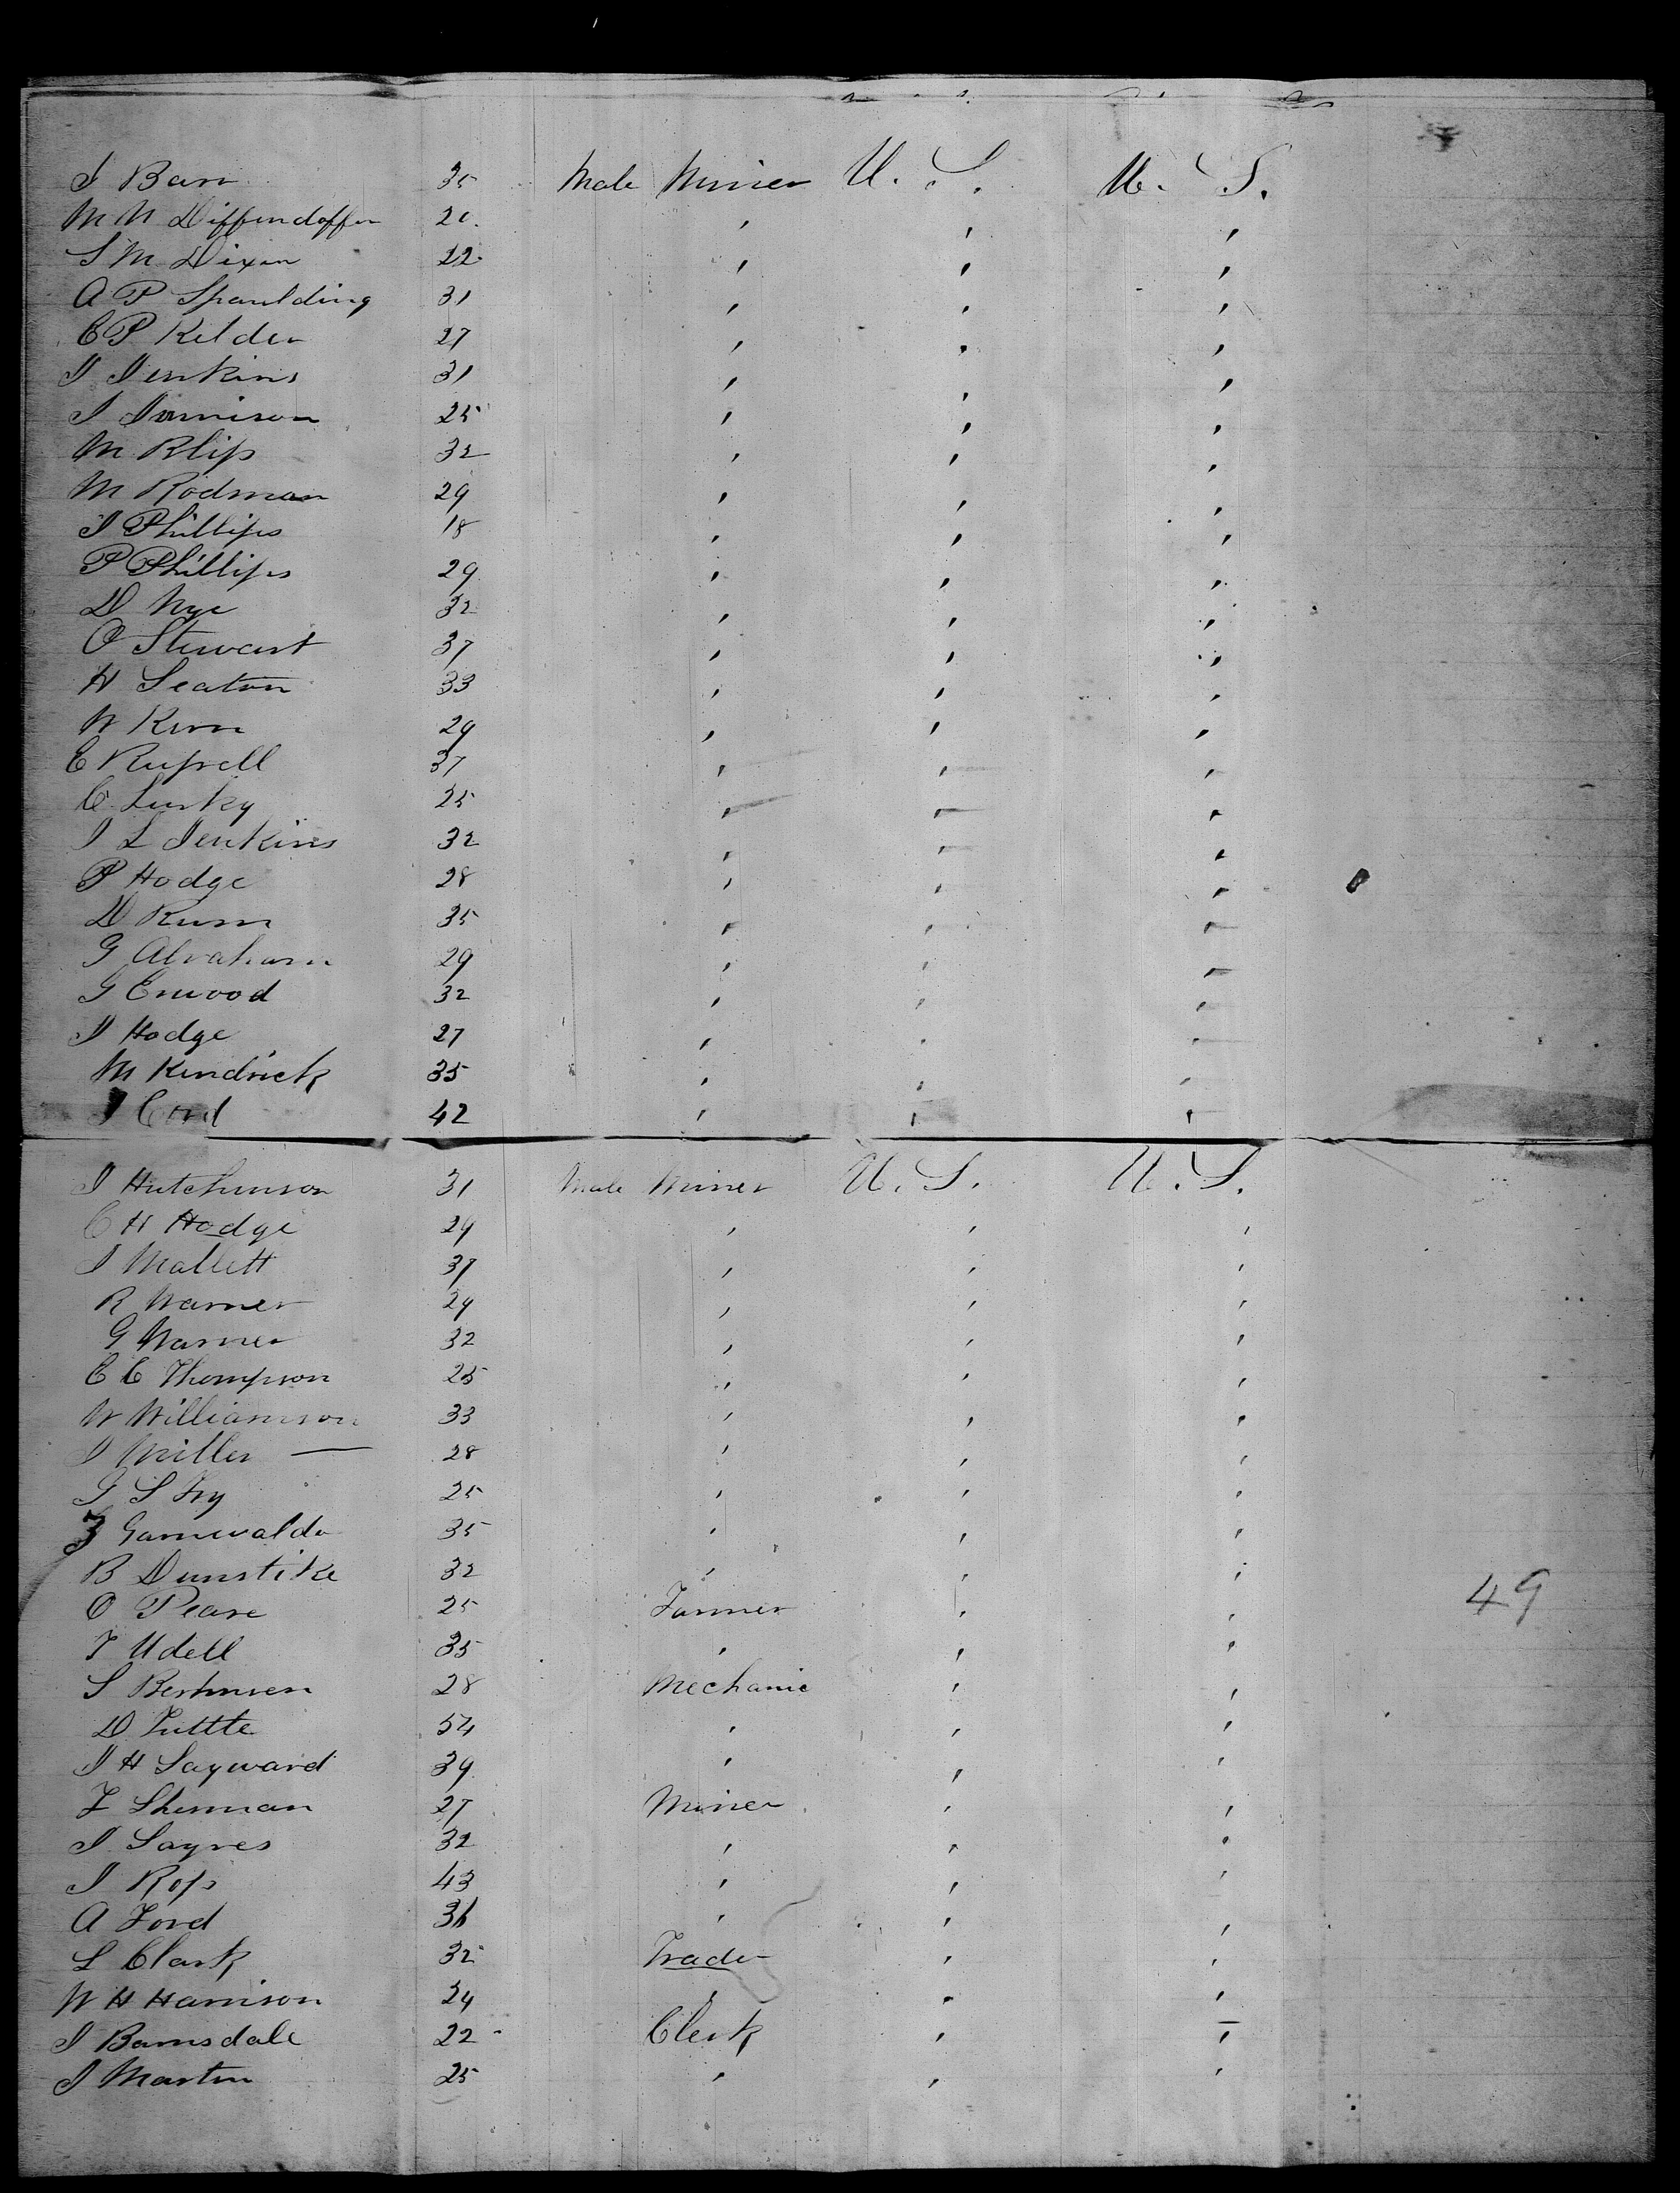 J Barr 35 Male Miner U. S. U. S.
M N Diffendoffer 20 , , ,
S M Dixon 22 , , ,
A P Spaulding 31 , , ,
C P Kelder 27 , , ,
J Jenkins 31 , , ,
J Jamison 25 , , ,
M Bliss 32 , , ,
M Rodman 29 , , ,
J Phillips 18 , , ,
P Phillips 29 , , ,
D Nye 32 , , ,
O Stewart 37 , , ,
H Seaton 33 , , ,
W Kern 29 , , ,
E Russell 37 , , ,
C Lusky 25 , , ,
J L Jenkins 32 , , ,
P Hodge 28 , , ,
D Rum 35 , , ,
G Abraham 29 , , ,
G Enwood 32 , , ,
J Hodge 27 , , ,
M Kendrick 35 , , ,
J Cord 42 , , ,
J Hutchinson 31 Male Miner U. S. U. S.
C H Hodge 29 , , ,
J Mallett 37 , , ,
R Warner 29 , , ,
G Warner 32 , , ,
C C Thompson 25 , , ,
W Williamson 33 , , ,
J Miller — 28 , , ,
G S Fry 25 , , ,
J Gamwalder 35 , , ,
B Dunstike 32 , , ,
O Pease 25 Farmer , ,
T Udell 35 , , ,
S Beshmsen 28 Mechanic , ,
D Tuttle 54 , , ,
J H Sayward 39 , , ,
F Sherman 27 Miner , ,
J Sayres 32 , , ,
J Ross 43 , , ,
A Ford 36 , , ,
L Clark 32 Trader , ,
W H Harrison 24 , , ,
J Barnsdale 22 Clerk , ,
J Martin 25 , , ,
49